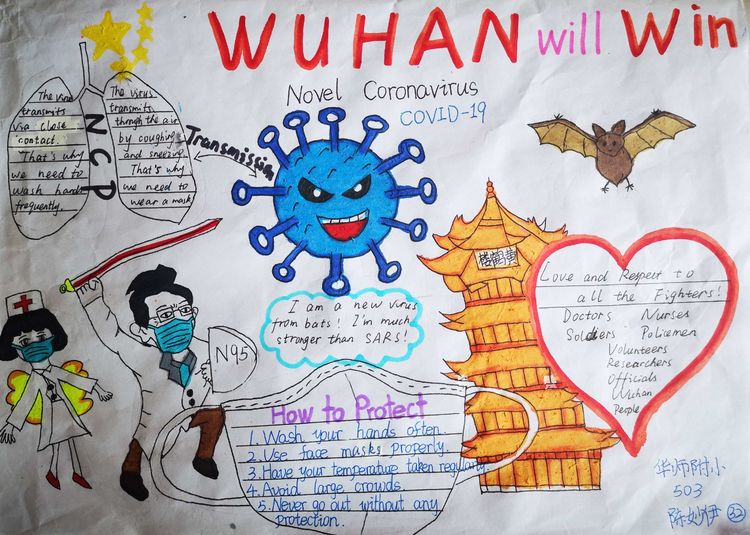 WUHAN will Win
Novel Coronavirus
COVID-19
The virus
transmits
via close
contact.
That's why
we need to
wash hands
frequently.
NCP
The virus
transmits
through the air
by coughing
and sneezing
That's why
we need to
wear a mask
Transmission
I am a new virus
from bats! I'm much
stronger than SARS!
N95
黄鹤楼
Love and Respect to
all the Fighters!
Doctors Nurses
Soldiers Policemen
Volunteers
Researchers
Officials
Wuhan
People
How to Protect
1. Wash your hands often.
2. Use face masks properly.
3. Have your temperature taken regularly.
4. Avoid large crowds.
5. Never go out without any
protection.
华师附小
503
陈妙伊 32